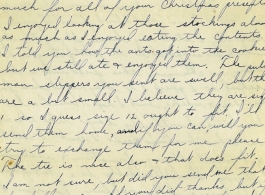 much for all of your Christmas presents
I enjoyed looking at those stockings almost
as much as I enjoyed eating the contents.
I told you how the ants got into the cookies
but we still ate & enjoyed them. The
man slippers you sent are swell, but they
are a bit small. I believe they are size
so I guess size 12 ought to fit. I'll
send them home, and if you can, will you
try to exchange them for me please
The tie is nice also & that does fit.
I am not sure, but did you send me that
I would thanks, but